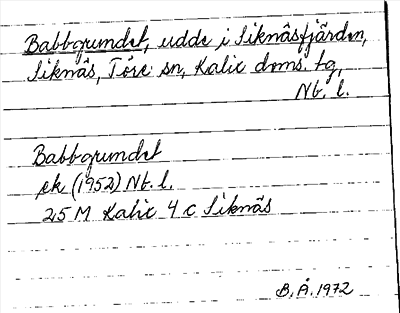 Babbgrundet, udde i Siknäsfjärden,
Siknäs, Töre sn, Kalix doms. tg,
Nb. l.
Babbgrundet
ek (1952) Nb. l.
25 M Kalix 4 c Siknäs
B. Å. 1972